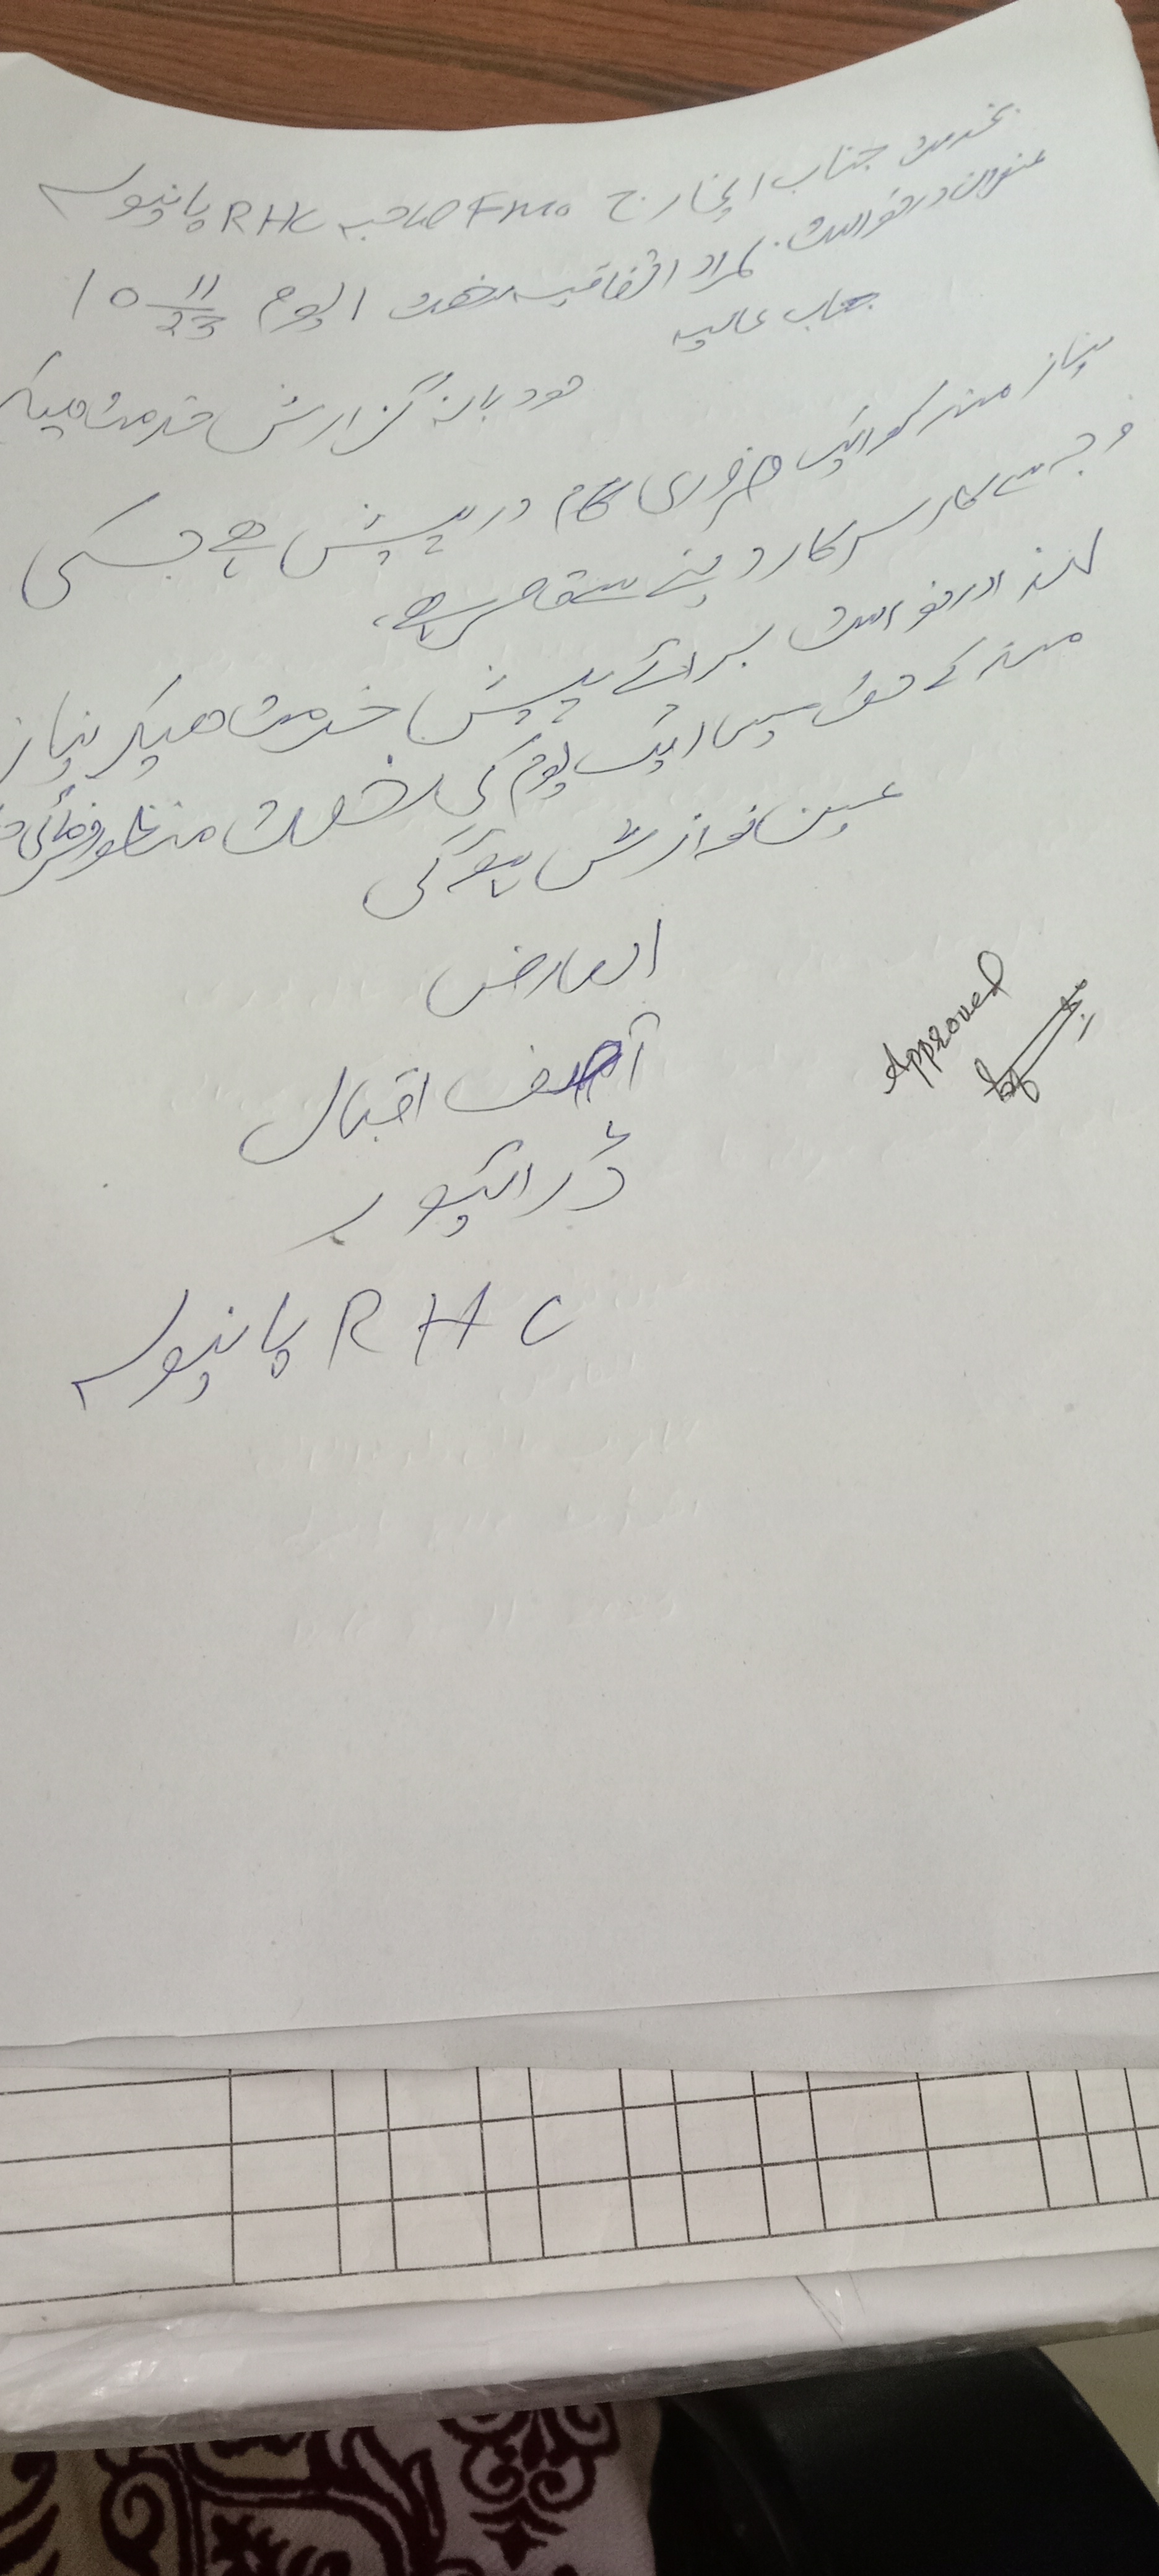 بخدمت جناب انچارج FMO صاحبہ RHC پانیولہ
عنوان درخواست بمراد اتفاقیہ رخصت الیوم 10 11/23
جناب عالیہ
مودبانہ گزارش خدمت ہیکہ
نیاز مند کو ایک ضروری کام درپیش ہے جسکی
وجہ سے کار سرکار دینے سے قاصر ہے،
لہذا درخواست برائے پیش خدمت ہیکہ نیاز
مند کے حق میں ایک یوم کی رخصت منظور فرمائی
عین نوازش ہوگی
العارض
آصف اقبال
ڈرائیور
RHC پانیولہ
Approved